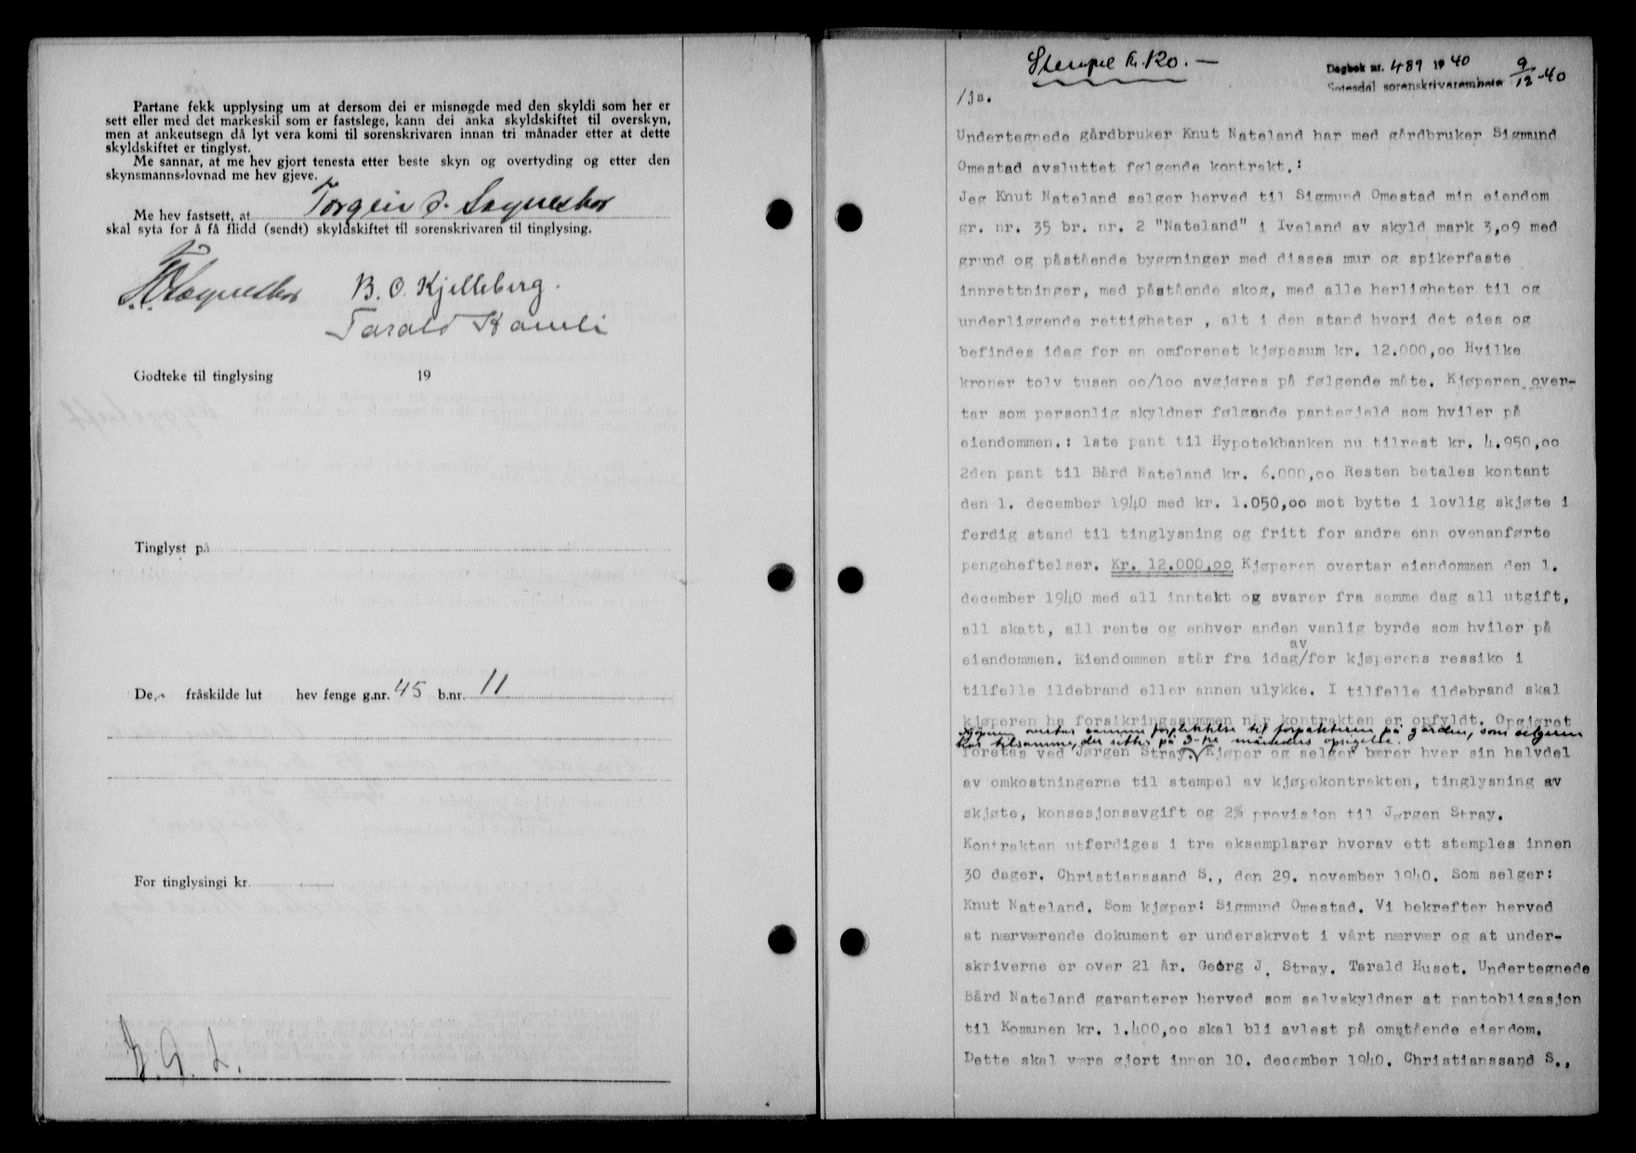 Partane fekk upplysing um at dersom dei er misnøgde med den skyldi som her er
sett eller med det markeskil som er fastslege, kann dei anka skyldskiftet til overskyn,
men at ankeutsegn då lyt vera komi til sorenskrivaren innan tri månader etter at dette
skyldskiftet er tinglyst.
Me sannar, at me hev gjort tenesta etter beste skyn og overtyding og etter den
skynsmanns-lovnad me hev gjeve.
Me hev fastsett, at Torgeir O. Sagneskor
skal syta for å få flidd (sendt) skyldskiftet til sorenskrivaren til tinglysing.
B. O. Kjelleberg.
Tarald Kamli
Godteke til tinglysing 19
Tinglyst på
De fråskilde lut hev fenge g.nr. 45 b.nr. 11
For tinglysingi kr.
Stempel kr. 120.—
Dagbok nr. 489 1940 9/12-40
Setesdal sorenskrivarembete
/js.
Undertegnede gårdbruker Knut Nateland har med gårdbruker Sigmund
Omestad avsluttet følgende kontrakt.:
Jeg Knut Nateland selger herved til Sigmund Omestad min eiendom
gr. nr. 35 br. nr. 2 "Nateland" i Iveland av skyld mark 3,09 med
grund og påstående bygninger med disses mur og spikerfaste
innrettninger, med påstående skog, med alle herligheter til og
underliggende rettigheter , alt i den stand hvori det eies og
befindes idag for en omforenet kjøpesum kr. 12.000,00 Hvilke
kroner tolv tusen oo/1oo avgjøres på følgende måte. Kjøperen over-
tar som personlig skyldner følgende pantegjeld som hviler på
eiendommen.: 1ste pant til Hypotekbanken nu tilrest kr. 4.950,00
2den pant til Bård Nateland kr. 6.000,00 Resten betales kontant
den 1. december 1940 med kr. 1.050,00 mot bytte i lovlig skjøte i
ferdig stand til tinglysning og fritt for andre enn ovenanførte
pengeheftelser. Kr. 12.000,00 Kjøperen overtar eiendommen den 1.
december 1940 med all inntekt og svarer fra samme dag all utgift,
all skatt, all rente og enhver anden vanlig byrde som hviler på
av
eiendommen. Eiendommen står fra idag/for kjøperens ressiko i
tilfelle ildebrand eller annen ulykke. I tilfelle ildebrand skal
kjøperen ha forsikringssummen når kontrakten er opfyldt. Opgjøret
Kjøperen overtar samme forpliktelse til forpakteren på gården, som selgeren
har tilsammen, der sitter på 3-tre måneders opsigelse.
foretas ved Jørgen Stray. √ Kjøper og selger bærer hver sin halvdel
av omkostningerne til stempel av kjøpekontrakten, tinglysning av
skjøte, konsesjonsavgift og 2% provision til Jørgen Stray.
Kontrakten utferdiges i tre eksemplarer hvorav ett stemples innen
30 dager. Christianssand S., den 29. november 1940. Som selger:
Knut Nateland. Som kjøper: Sigmund Omestad. Vi bekrefter herved
at nærværende dokument er underskrvet i vårt nærvær og at under-
skriverne er over 21 år. Georg J. Stray. Tarald Huset. Undertegnede
Bård Nateland garanterer herved som selvskyldner at pantobligasjon
til Komunen kr. 1.400,00 skal bli avlest på omstående eiendom.
Dette skal være gjort innen 10. december 1940. Christianssand S.,